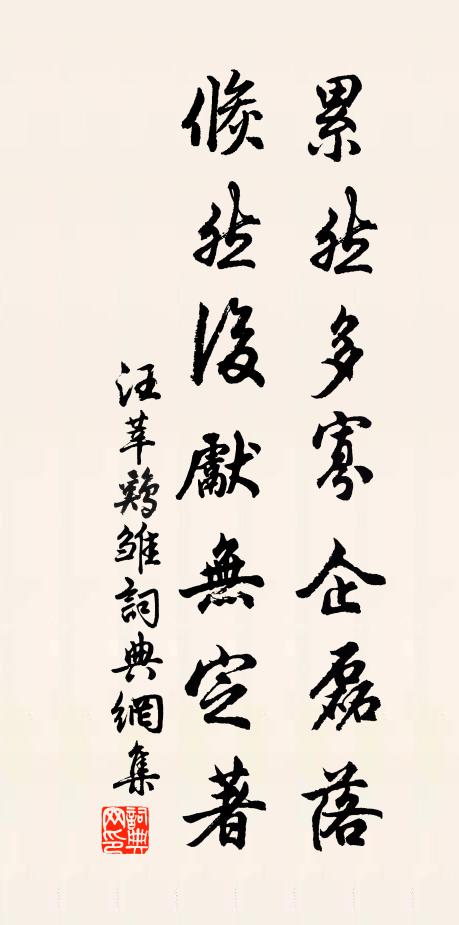 累然多寡企磊落
倐然後獻無定著
汪莘鷄雛詞典網集
詞典网印